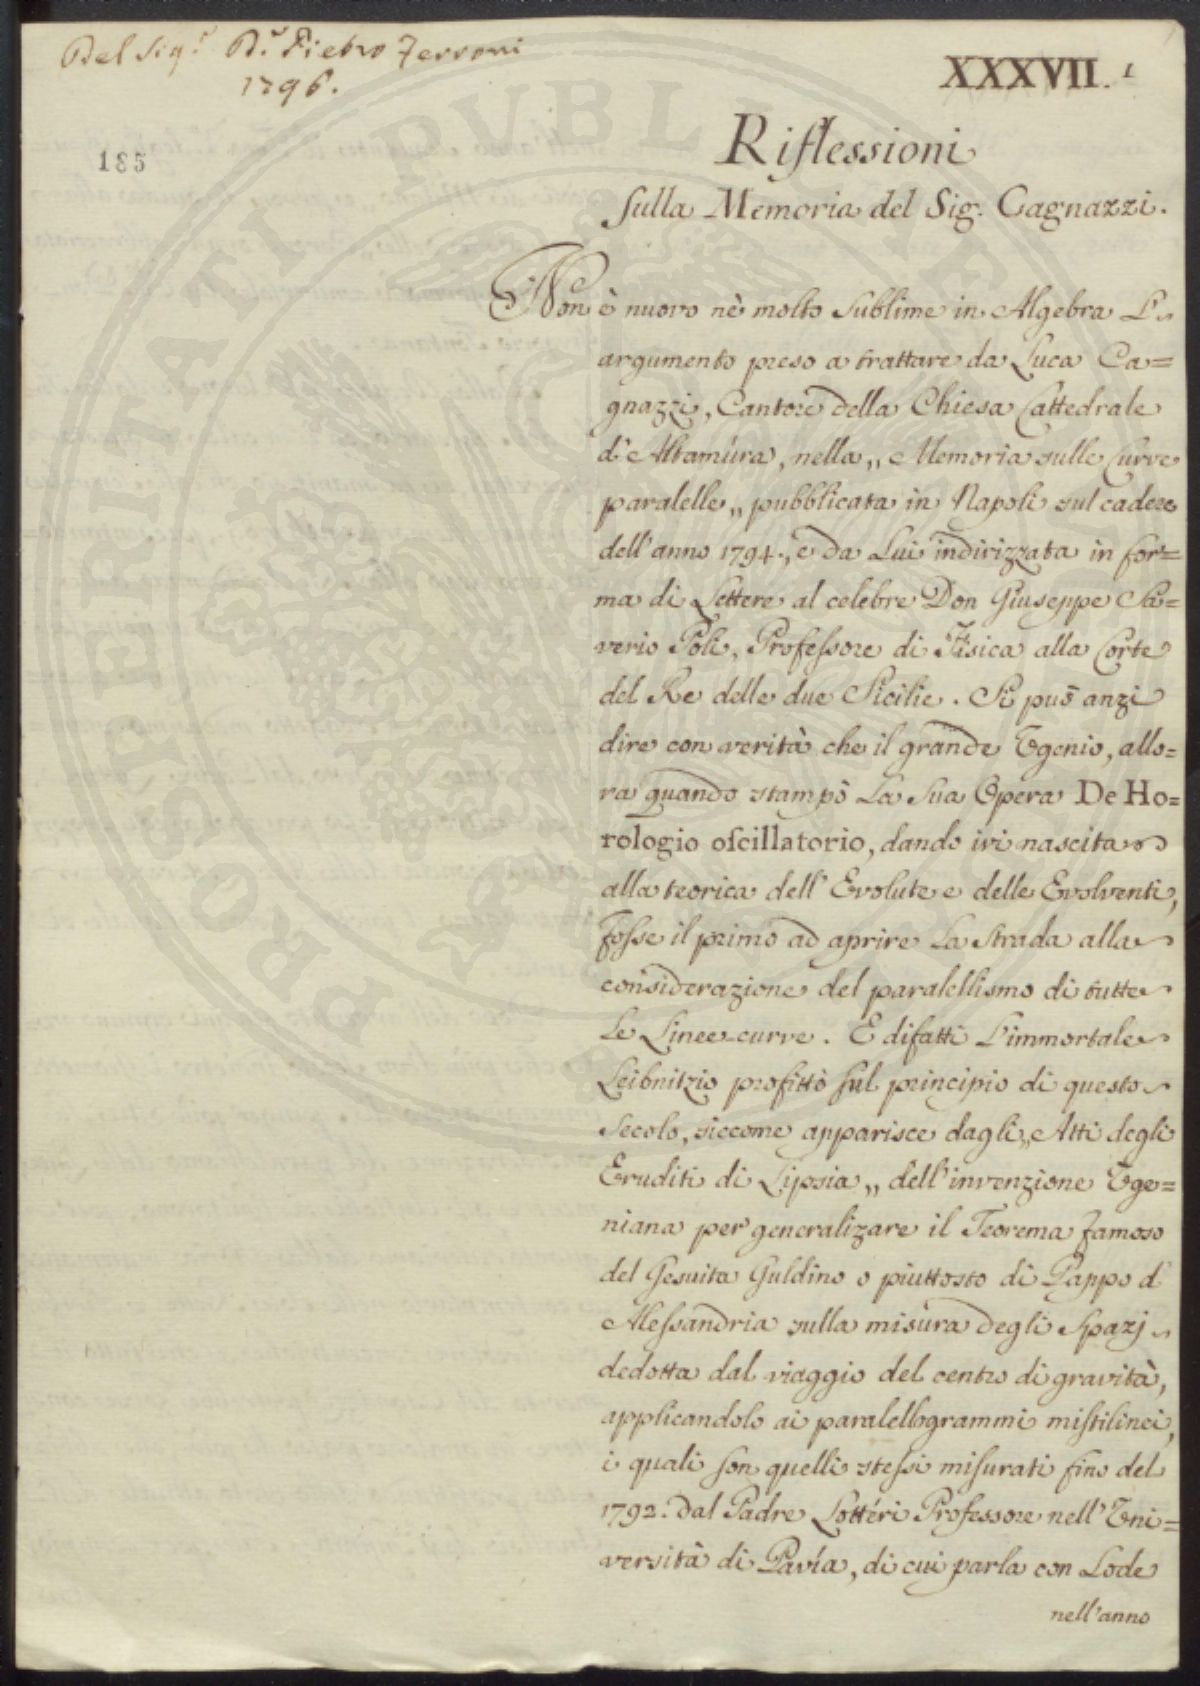 Del Sig.r D.r Pietro Ferroni
1796.
XXXVII. 1
185
Riflessioni
sulla Memoria del Sig. Cagnazzi.
Non è nuovo nè molto sublime in Algebra l'
argumento preso a trattare da Luca Ca=
gnazzi, Cantore della Chiesa Cattedrale
d'Altamúra, nella „ Memoria sulle Curve
paralelle „ pubblicata in Napoli sul cadere
dell'anno 1794., e da Lui indirizzata in for=
ma di Lettere al celebre Don Giuseppe Sa=
verio Poli, Professore di Fisica alla Corte
del Re delle due Sicilie. Si può anzi
dire con verità che il grande Ugenio, allo=
ra quando stampò la sua Opera De Ho=
rologio oscillatorio, dando ivi nascita
alla teorica dell'Evolute e delle Evolventi,
fosse il primo ad aprire la strada alla
considerazione del paralellismo di tutte
le Linee curve. E difatti l'immortale
Leibnitzio profittò sul principio di questo
Secolo, siccome apparisce dagli „ Atti degli
Eruditi di Lipsia „ dell'invenzione Uge=
niana per generalizare il Teorema famoso
del Gesuita Guldino o piuttosto di Pappo d'
Alessandria sulla misùra degli Spazj
dedotta dal viaggio del centro di gravità,
applicandolo ai paralellogrammi mistilinei,
i quali son quelli stessi misurati fino del
1792. dal Padre Lottéri Professore nell'Uni=
versità di Pavía, di cui parla con Lode
nell'anno
PROSPERITATI PUBLICAE